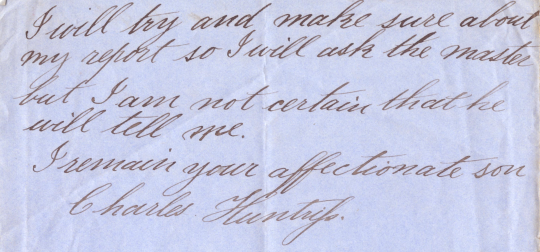 I will try and make sure about
my report so I will ask the master
but I am not certain that he
will tell me.
I remain your affectionate son
Charles Huntriss.